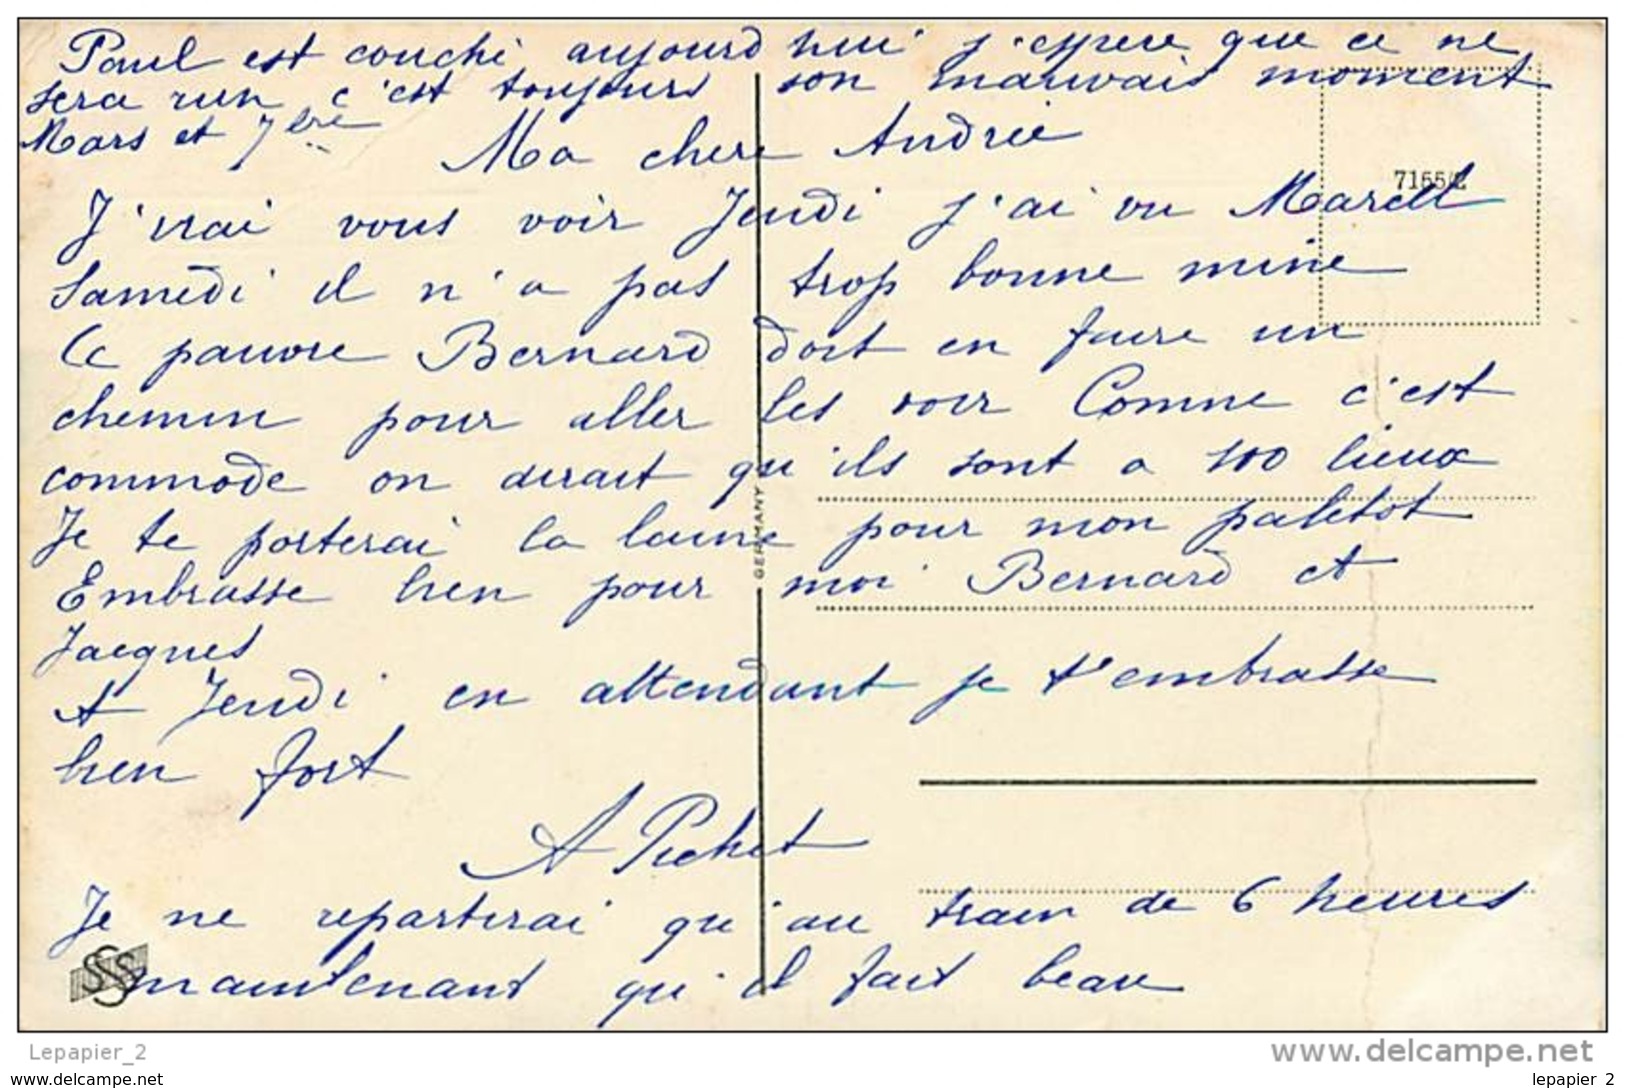 Paul est couché aujourd'hui j'espere que ce ne
sera rien c'est toujours son mauvais moment
Mars et 7bre
Ma chere Andrée
7155/2
J'irai vous voir Jeudi j'ai vu Marcel
Samedi il n'a pas trop bonne mine
Ce pauvre Bernard doit en faire un
chemin pour aller les voir Comme c'est
commode on dirait qu'ils sont a 100 lieux
Je te porterai la laine pour mon paletot
Embrasse bien pour moi Bernard et
Jacques
A Jeudi en attendant je t'embrasse
bien fort
A Pichet
Je ne repartirai qu'au train de 6 heures
maintenant qu'il fait beau
GERMANY
SSS
Lepapier_2
www.delcampe.net
lepapier_2
lepapier_2